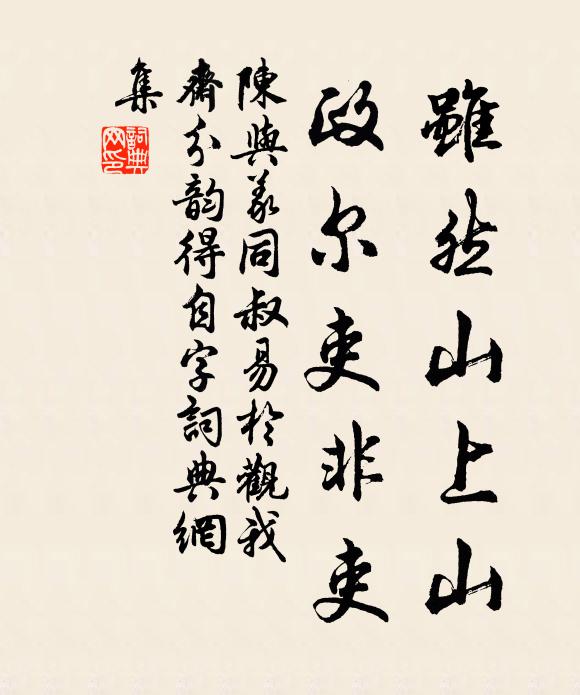 雖然山上山
政尔吏非吏
陳與義同叔易於觀我
齋分韵得自字詞典網
集
詞典網印